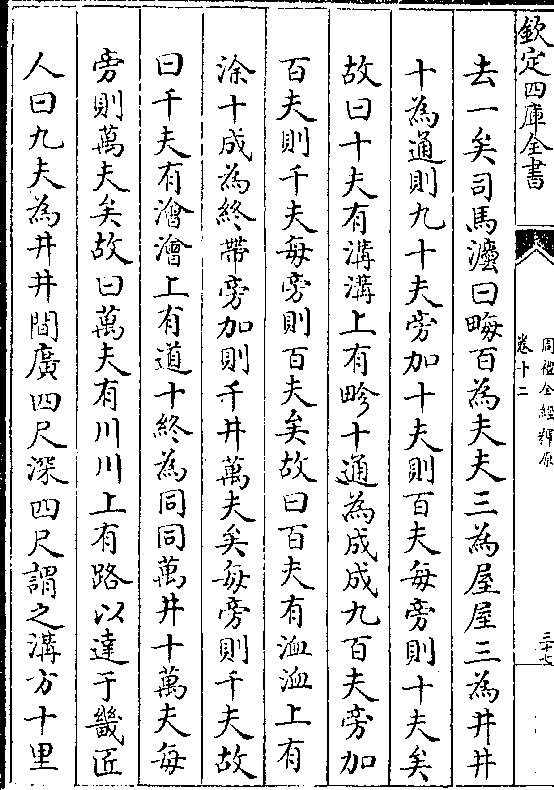 欽定四庫全書
周禮全經釋原
卷十二
三十七
去一矣司馬灋曰畮百為夫夫三為屋屋三為井井
十為通則九十夫旁加十夫則百夫每旁則十夫矣
故曰十夫有溝溝上有畛十通為成成九百夫旁加
百夫則千夫每旁則百夫矣故曰百夫有洫洫上有
涂十成為終帶旁加則千井萬夫矣每旁則千夫故
曰千夫有澮澮上有道十終為同同萬井十萬夫每
旁則萬夫矣故曰萬夫有川川上有路以達于畿匠
人曰九夫為井井間廣四尺深四尺謂之溝方十里